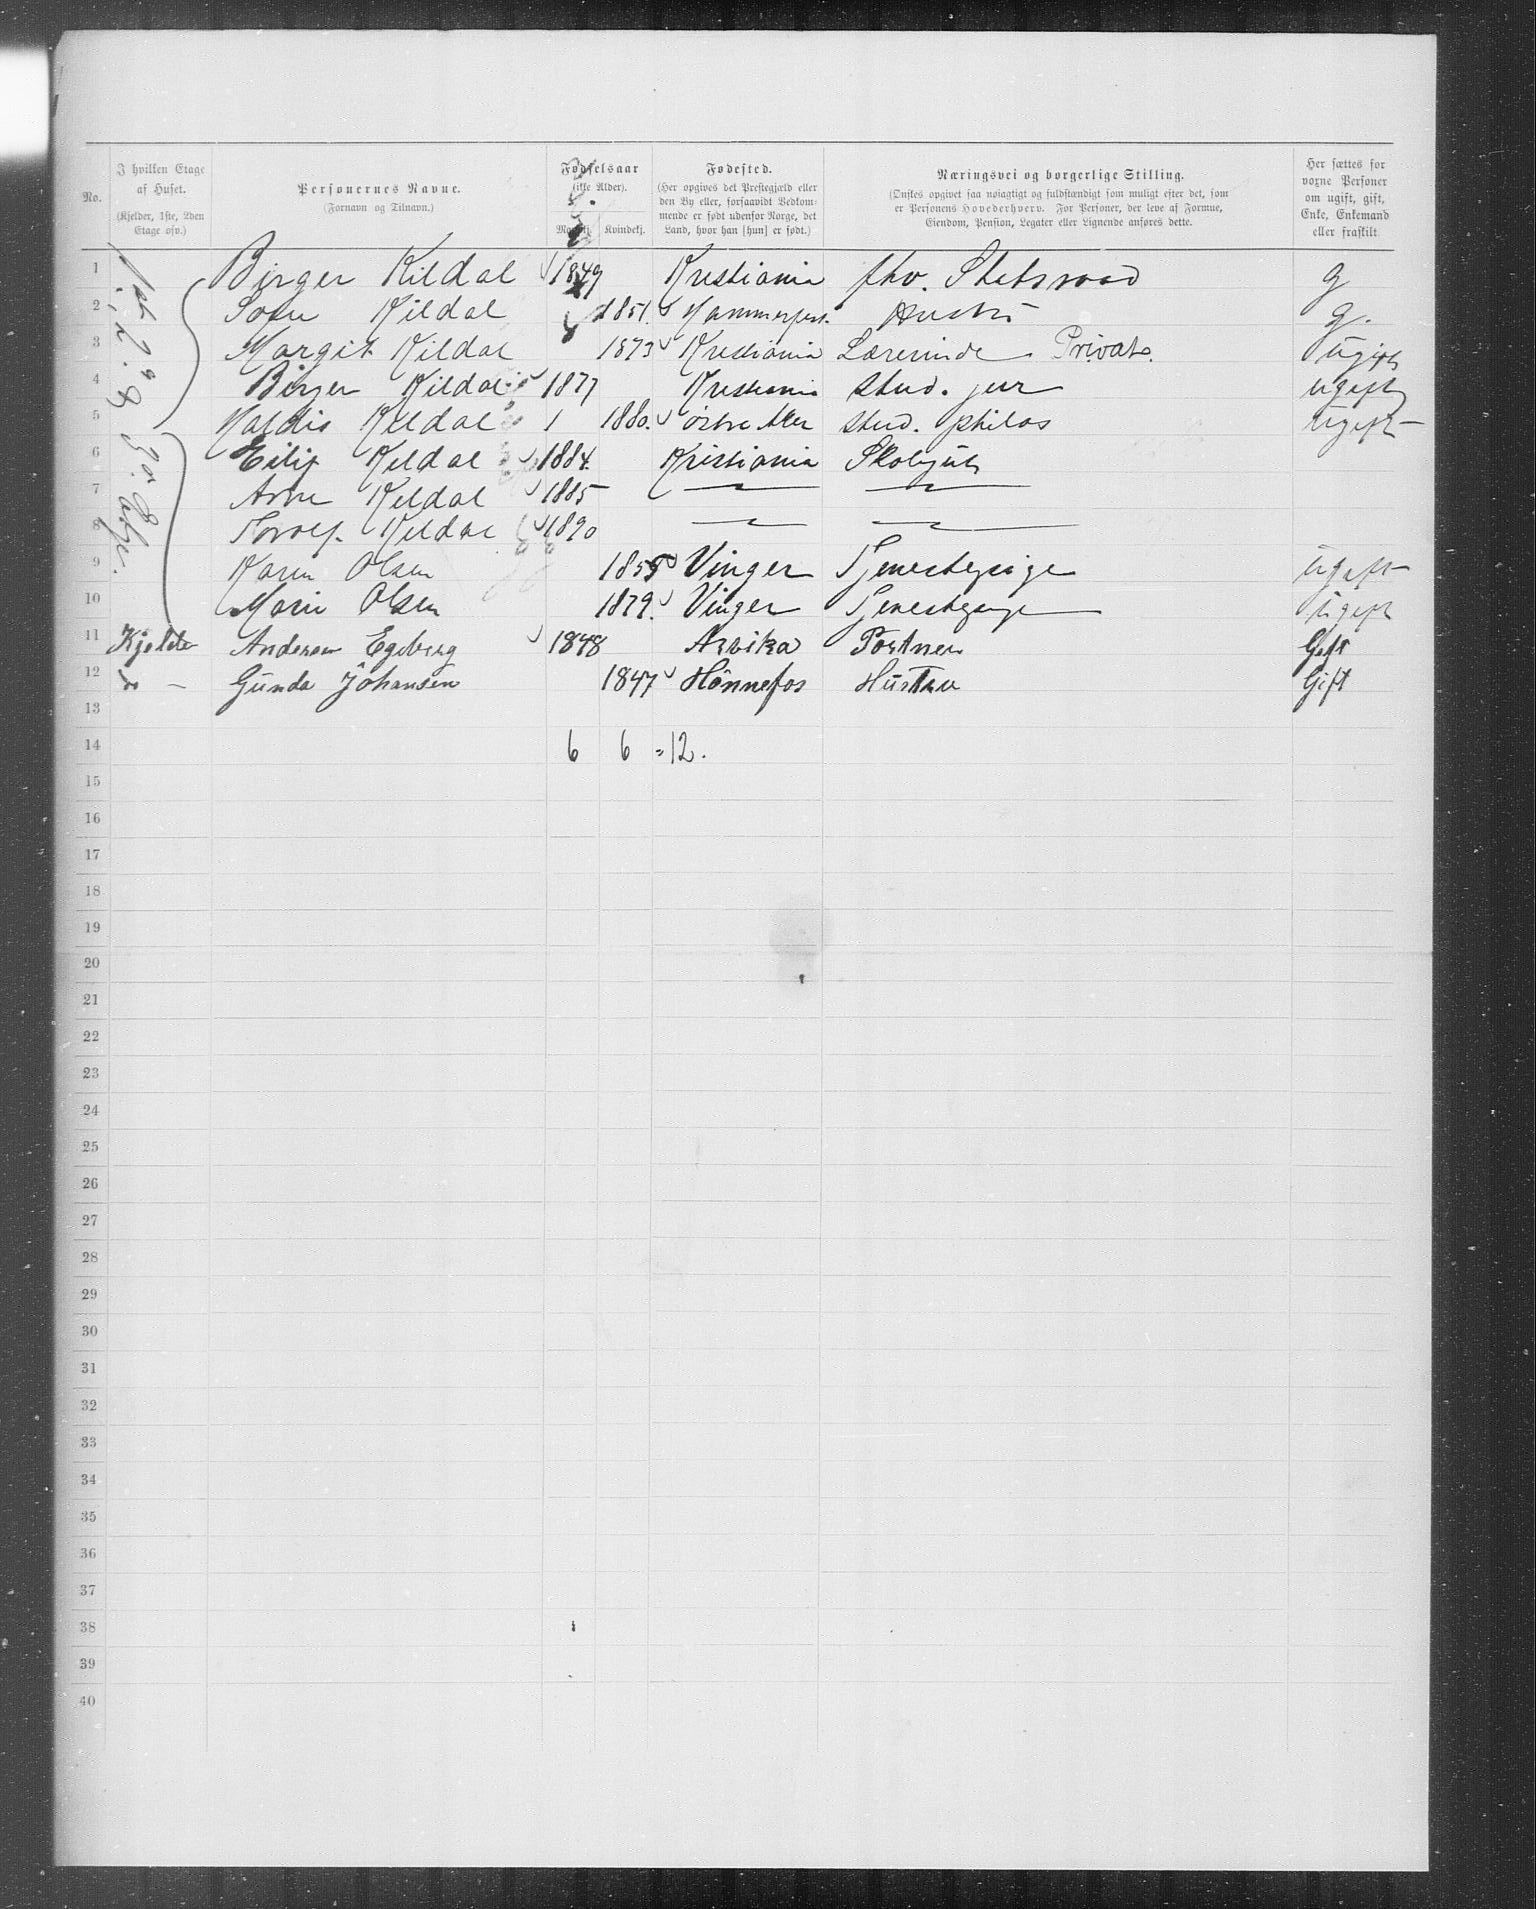 No.
I hvilken Etage af Huset.
(Kjelder, 1ste, 2den Etage osv.)
Personernes Navne.
(Fornavn og Tilnavn.)
Fødselsaar
(ikke Alder).
Mandkj. Kvindekj.
Fødested.
(Her opgives det Prestegjæld eller den By eller, forsaavidt Vedkommende er født udenfor Norge, det Land, hvor han [hun] er født.)
Næringsvei og borgerlige Stilling.
(Ønskes opgivet saa nøiagtigt og fuldstændigt som muligt efter det, som er Personens Hovederhverv. For Personer, der leve af Formue, Eiendom, Pension, Legater eller Lignende anføres dette.)
Her sættes for voxne Personer om ugift, gift, Enke, Enkemand eller fraskilt.
1 Birger Kildal 1849 Kristiania fhv. Statsraad g
2 Kildal 1851. Hammerfest. Hustru g.
3 Margit Kildal 1873 Kristiania Lærerinde Privat. ugift
4 Birger Kildal 1877 Kristiania stud. jur ugift
5 Haldis Kildal 1880. østre Aker stud. philos ugift
6 Eilif Kildal 1884. Kristiania Skolegut
7 Arne Kildal 1885 — —
8 Kildal 1890 — —
9 Karen Olsen 1855 Vinger Tjenestepige ugift
10 Marie Olsen 1879. Vinger Tjenestepige ugift
11 Kjelder Andersen Egeberg 1848 Arvika Portner Gift
12 do — Gunda Johansen 1847 Hönnefos Hustru Gift
13
14 6 6 = 12.
15
16
17
18
19
20
21
22
23
24
25
26
27
28
29
30
31
32
33
34
35
36
37
38
39
40